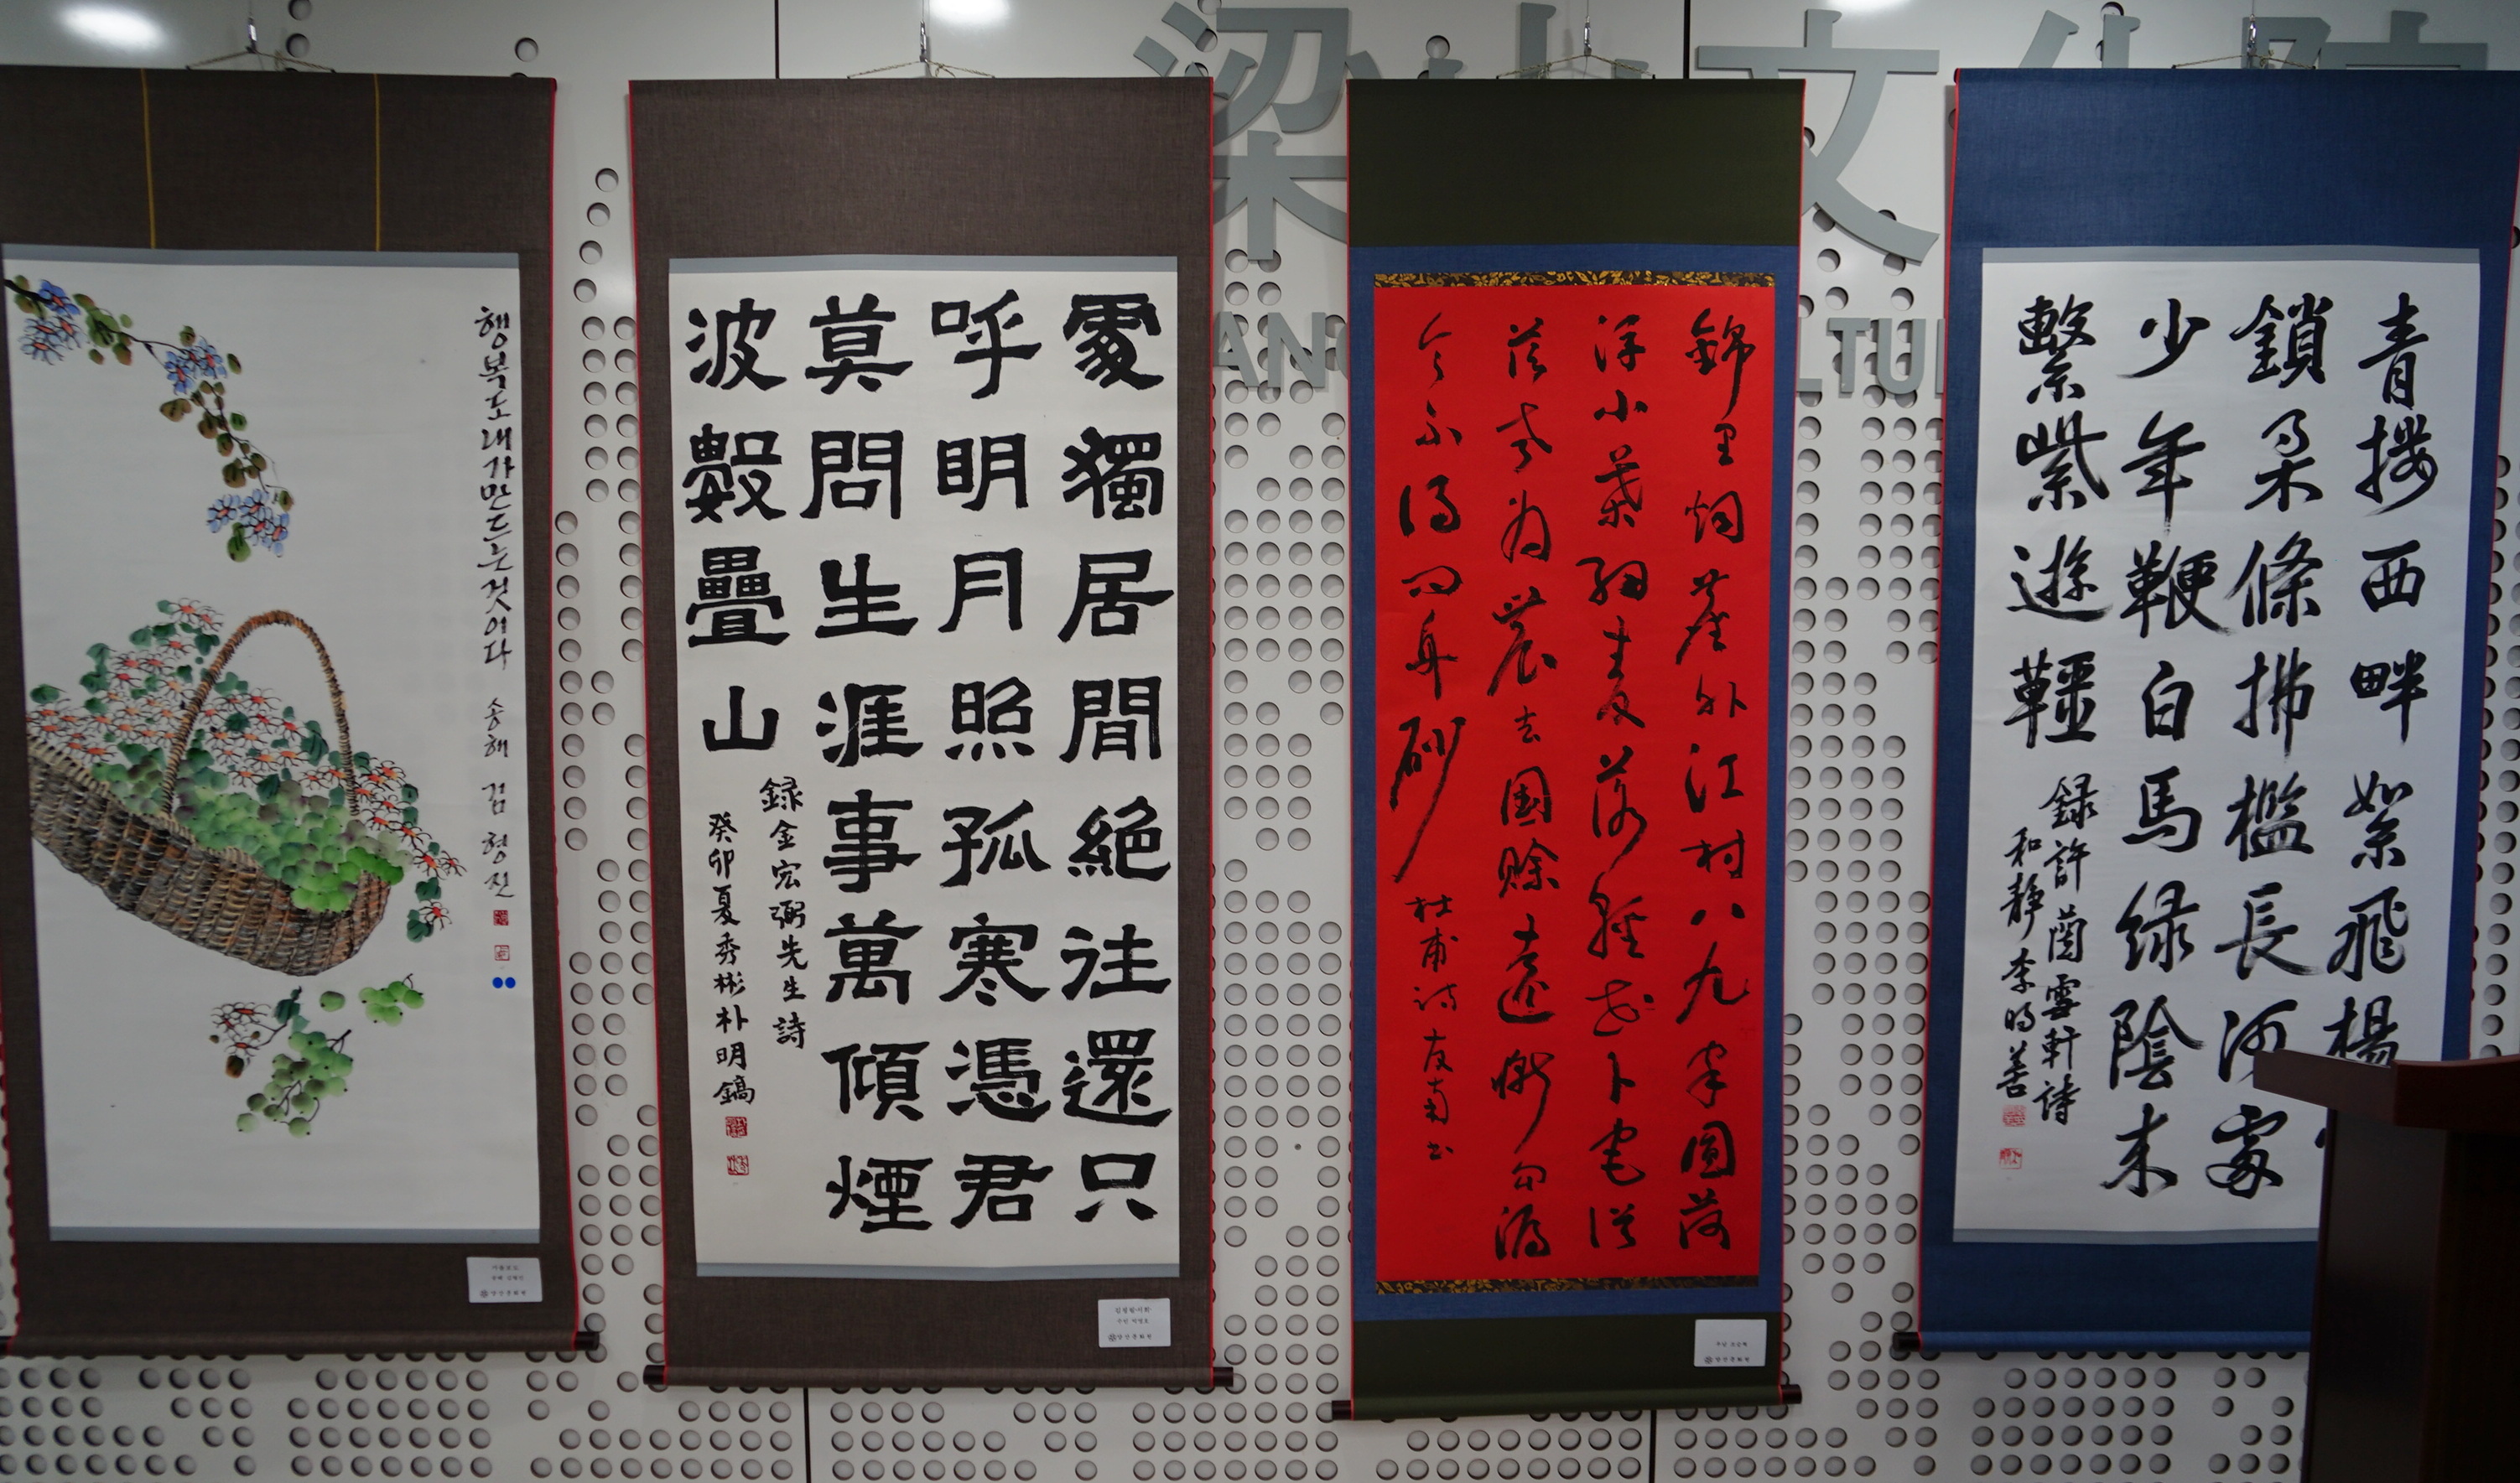 행복도 내가 만드는 것이다
송해 김형진
處獨居間絶往還只
呼明月照孤寒憑君
莫問生涯事萬傾煙
波數疊山
録金宏弼先生詩
癸卯夏秀彬朴明鎬
錦里烟塵外江村八九家圓荷
浮小葉細麥落輕花卜宅從
茲老為農去國賒遠慚勾漏
令不得問丹砂
杜甫詩友南书
青樓西畔絮飛楊
鎖柔條拂檻長河處
少年鞭白馬緑陰來
繫紫遊韁
録許蘭雪軒詩
和靜李明善
梁
文化院
LTU
양산문화원
양산문화원
양산문화원